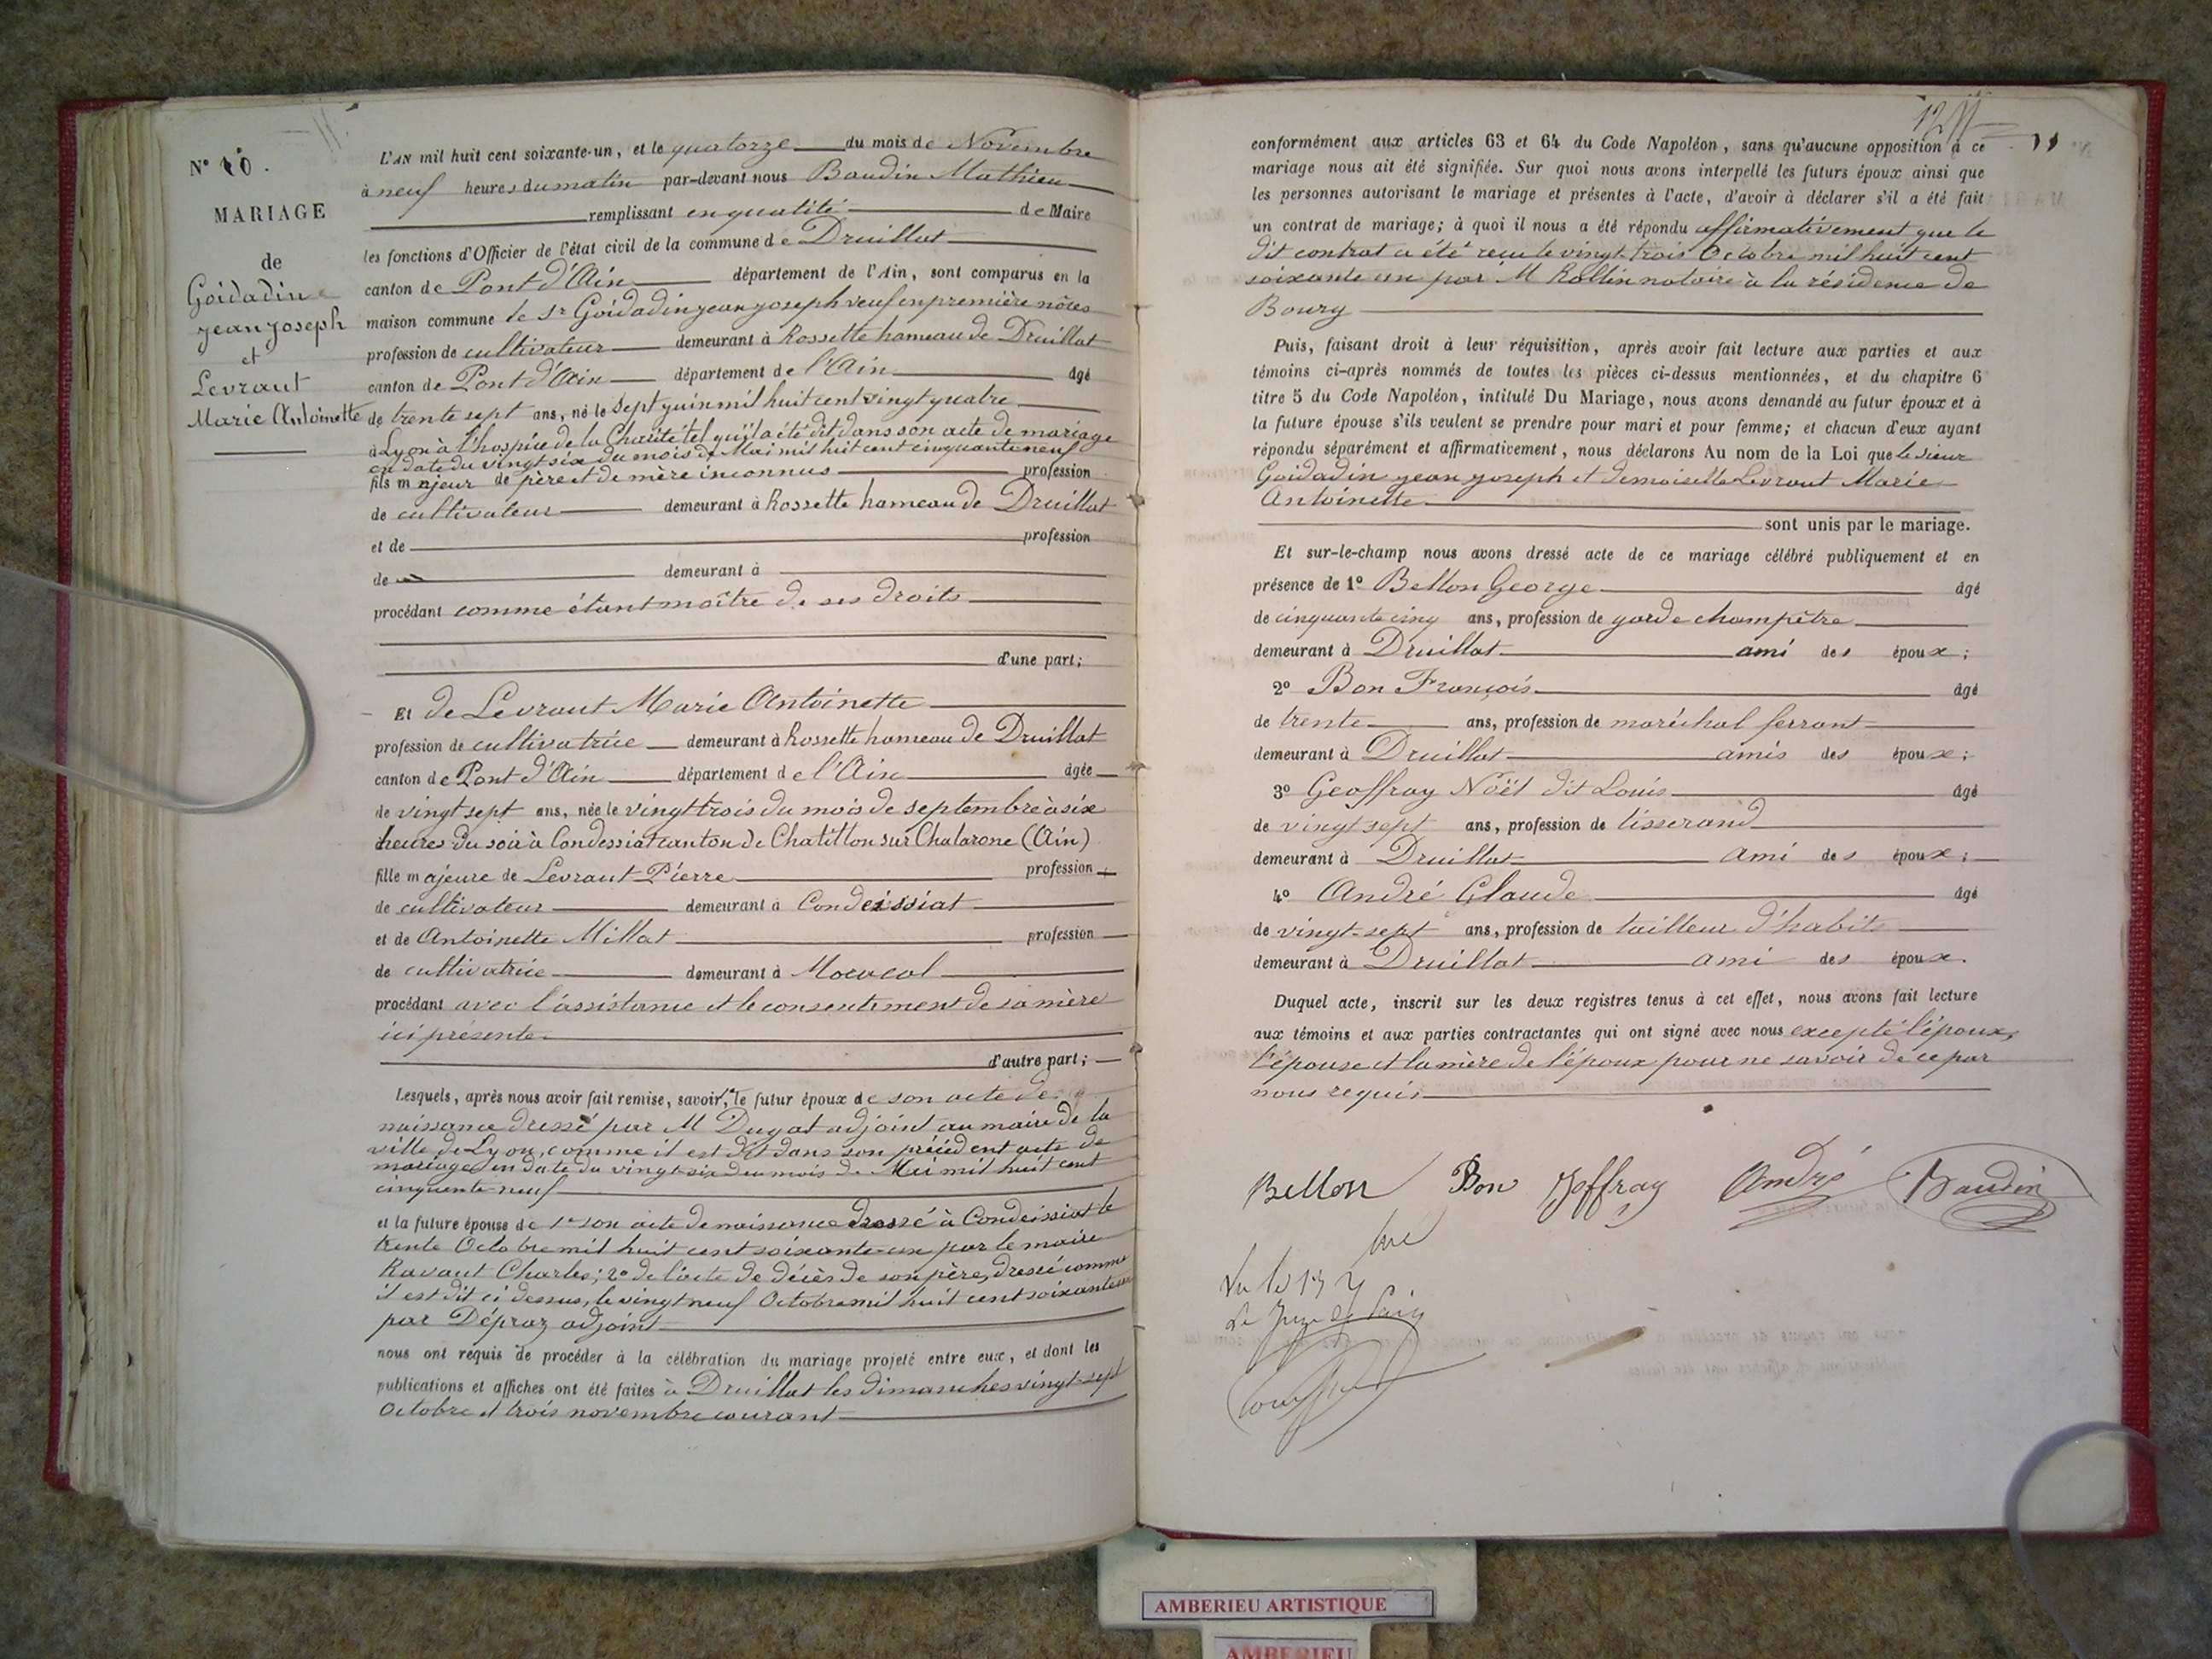 N° 10.
MARIAGE
de
Goidadin
jean joseph
et
Levraut
Marie Antoinette
L'AN mil huit cent soixante-un, et le quatorze du mois de Novembre
à neuf heures du matin par-devant nous Baudin Mathieu
remplissant en qualité de Maire
les fonctions d'Officier de l'état civil de la commune de Druillat
canton de Pont d'Ain département de l'Ain, sont comparus en la
maison commune le Sr Goidadin jean joseph veuf en première nôces
profession de cultivateur demeurant à Rossette hameau de Druillat
canton de Pont d'Ain département de l'Ain âgé
de trente sept ans, né le sept juin mil huit cent vingt quatre
à Lyon à l'hospice de la Charité tel qu'il a été dit dans son acte de mariage
en date du vingt six du mois de Mai mil huit cent cinquante neuf
fils majeur de père et de mère inconnus profession
de cultivateur demeurant à Rossette hameau de Druillat
et de profession
de demeurant à
procédant comme étant maître de ses droits
d'une part;
Et de Levraut Marie Antoinette
profession de cultivatrice demeurant à Rossette hameau de Druillat
canton de Pont d'Ain département de l'Ain âgée
de vingt sept ans, née le vingt trois du mois de septembre à six
heures du soir à Condessiat canton de Chatillon sur Chalarone (Ain)
fille majeure de Levraut Pierre profession
de cultivateur demeurant à Condeissiat
et de Antoinette Millat profession
de cultivatrice demeurant à
procédant avec l'assistance et le consentement de sa mère
ici présente
d'autre part;
Lesquels, après nous avoir fait remise, savoir, le futur époux de son acte de
naissance dressé par M Dugat adjoint au maire de la
ville de Lyon, comme il est dit dans son précédent acte de
mariage en date du vingt-six du mois de Mai mil huit cent
cinquante-neuf
et la future épouse de 1° son acte de naissance dressé à Condeissiat le
trente Octobre mil huit cent soixante-un par le maire
Ravaut Charles; 2° de l'acte de décès de son père, dressé comme
il est dit ci dessus, le vingt neuf Octobre mil huit cent soixante un
par Dépraz adjoint
nous ont requis de procéder à la célébration du mariage projeté entre eux, et dont les
publications et affiches ont été faites à Druillat les dimanches vingt-sept
Octobre et trois novembre courant
11
conformément aux articles 63 et 64 du Code Napoléon, sans qu'aucune opposition à ce
mariage nous ait été signifiée. Sur quoi nous avons interpellé les futurs époux ainsi que
les personnes autorisant le mariage et présentes à l'acte, d'avoir à déclarer s'il a été fait
un contrat de mariage; à quoi il nous a été répondu affirmativement que le
dit contrat a été reçu le vingt-trois Octobre mil huit cent
soixante un par M Rollin notaire à la résidence de
Bourg
Puis, faisant droit à leur réquisition, après avoir fait lecture aux parties et aux
témoins ci-après nommés de toutes les pièces ci-dessus mentionnées, et du chapitre 6
titre 5 du Code Napoléon, intitulé Du Mariage, nous avons demandé au futur époux et à
la future épouse s'ils veulent se prendre pour mari et pour femme; et chacun d'eux ayant
répondu séparément et affirmativement, nous déclarons Au nom de la Loi que le sieur
Goidadin jean joseph et demoiselle Levraut Marie
Antoinette
sont unis par le mariage.
Et sur-le-champ nous avons dressé acte de ce mariage célébré publiquement et en
présence de 1° Bellon George âgé
de cinquante cinq ans, profession de garde champêtre
demeurant à Druillat ami des époux;
2° Bon François âgé
de trente ans, profession de maréchal ferrant
demeurant à Druillat amis des époux;
3° Geoffray Noël dit Louis âgé
de vingt sept ans, profession de tisserand
demeurant à Druillat ami des époux;
4° André Claude âgé
de vingt-sept ans, profession de tailleur d'habits
demeurant à Druillat ami des époux.
Duquel acte, inscrit sur les deux registres tenus à cet effet, nous avons fait lecture
aux témoins et aux parties contractantes qui ont signé avec nous excepté l'époux,
l'épouse et la mère de l'époux pour ne savoir de ce par
nous requis
Bellon Bon Joffray André Baudin
Le Juge de Paix
AMBERIEU ARTISTIQUE
AMBERIEU